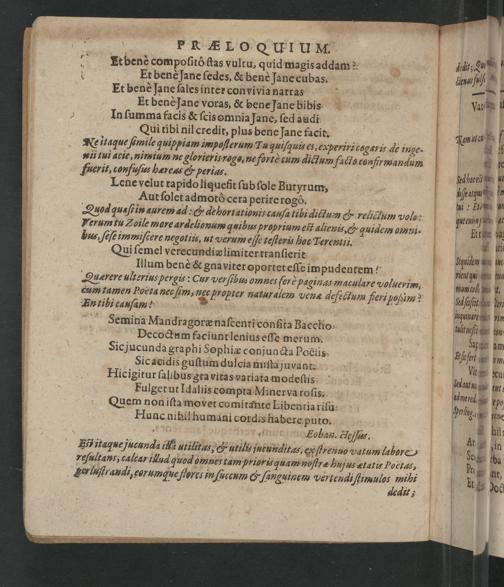 PRÆLOQUIUM.
Et benè compositô stas vultu, quid magis addam?
Et benè Jane sedes, & benè Jane cubas.
Et benè Jane sales inter convivia narras
Et benè Jane voras, & bene Jane bibis
In summa facis & scis omnia Jane, sed audi
Qui tibi nil credit, plus bene Jane facit.
Ne itaque simile quippiam imposterum Tu quisquis es, experiri cogaris de inge-
nii tui acie, nimium ne glorieris rogo, ne fortè cum dictum facto confirmandum
fuerit, confusus hæreas & perias.
Lene velut rapido liquescit sub sole Butyrum,
Aut solet admotô cera perire rogô.
Quod quasi in aurem ad: & dehortationis causa tibi dictum & relictum volo:
Verum tu Zoile more ardelionum quibus proprium est alienis, & quidem omni-
bus, sese immiscere negotiis, ut verum esse testeris hoc Terentii.
Qui semel verecundiæ limiter transierit
Illum benè & gnaviter oportet esse impudentem!
Quærere ulterius pergis: Cur versibus omnes ferè paginas maculare voluerim,
cum tamen Poëta nec sim, nec propter naturalem venæ defectum fieri possim?
En tibi causam!
Semina Mandragoræ nascenti consita Baccho
Decoctum faciunt lenius esse merum.
Sic jucunda graphi Sophiæ conjuncta Poëtis
Sic acidis gustum dulcia mista juvant.
Hic igitur salibus gravitas variata modestis
Fulget ut Idaliis compta Minerva rosis.
Quem non ista movet comitante Libentia risu
Hunc nihil humani cordis habere puto.
Eoban. Hessus.
Est itaque jucunda illa utilitas, & utilis jucunditas, ex strenuo vatum labore
resultans, calcar illud quod omnes tam prioris quam nostræ hujus ætatis Poëtas,
perlustrandi, eorumque flores in succum & sanguinem vertendi stimulos mihi
dedit;